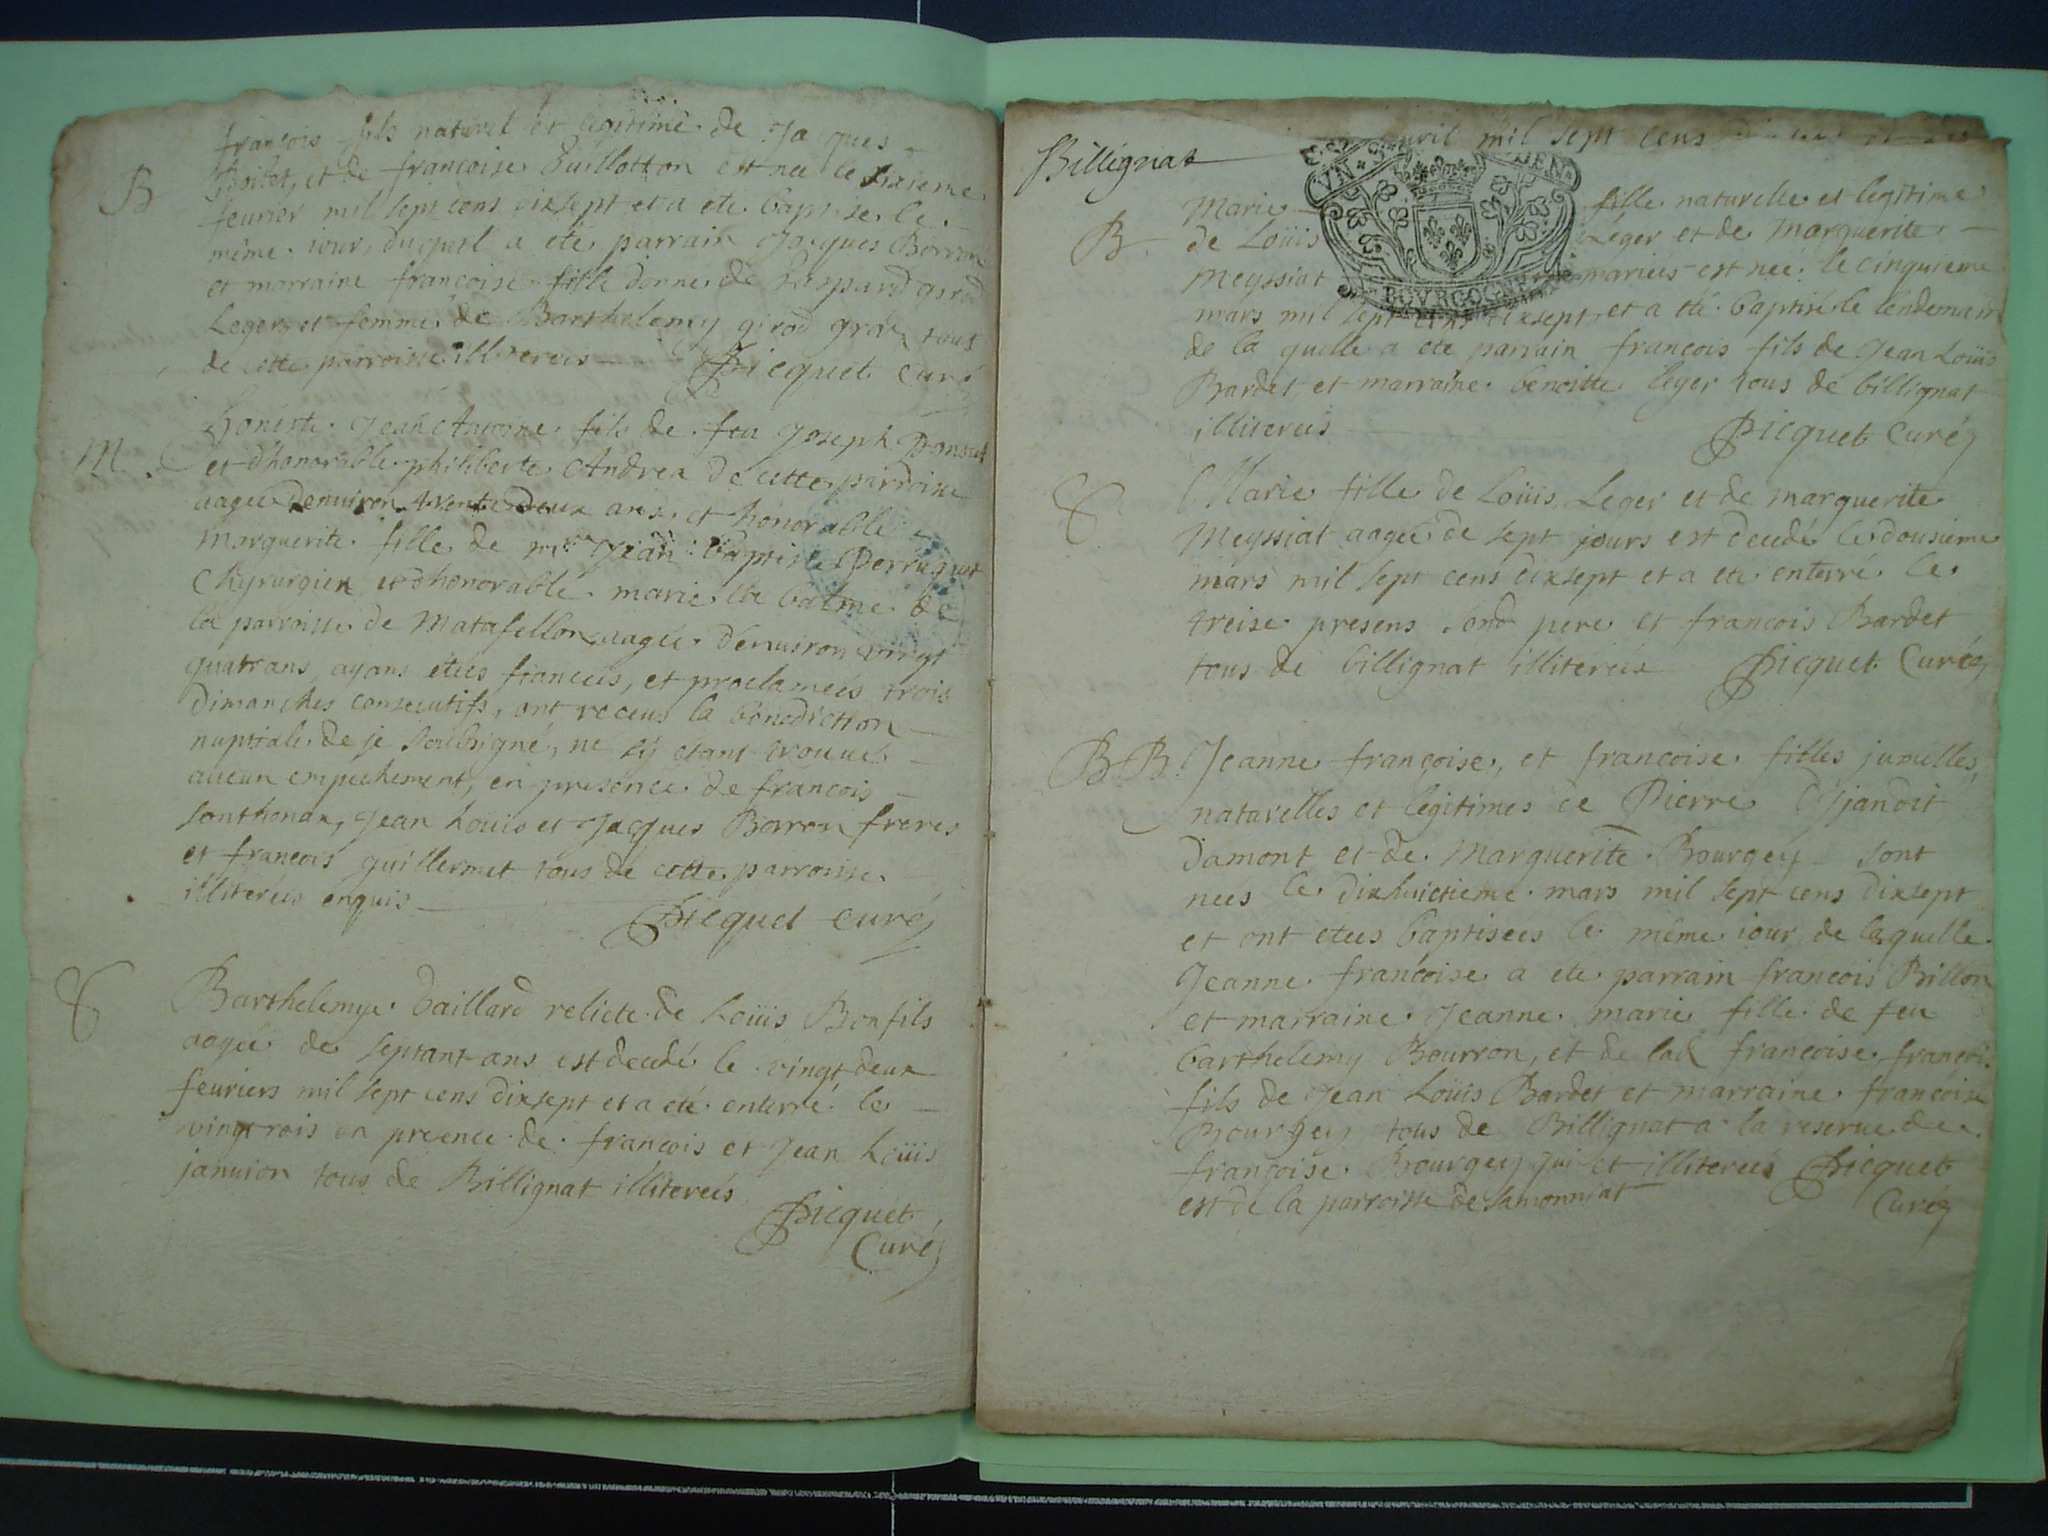 françois fils naturel et legitime de Jacques
B
et de françoise Guillotton est nee le sixieme
feurier mil sept cens dixsept et a ete baptise le
même iour, duquel a eté parrain Jacques Borron
et marraine françoise fille donne de
Leger et femme de Barthelemy girod tous
de cette parroisse illitereis Picquet curé
M.
honeste Jean Antoine fils de feu Joseph
et d'honorable philiberte Andrea de cette parroisse
aagée denuiron trente deux ans et honorable
marguerite fille de mre Jean baptiste Perrugnot
Chyrurgien et dhonorable marie la balme de
la parroisse de Matafellon aagée denuiron vingt
quatrans, ayans étees fiancees, et proclamées trois
Dimanches consecutifs, ont receus la benediction
nuptiale de je soubsigné, ne sÿ etant trouué
aucun empechement, en presence de françois
sonthonax, Jean Louis et Jacques Borron freres
et françois guillermet tous de cette parroisse
illitereis enquis
Picquet curé
Barthelemye Gaillard relicte de Loüis Bonfils
aagée de septant ans est decedé le vingt deux
feuriers mil sept cens dixsept et a eté enterré le
vingtrois en preence de françois et Jean Loüis
januion tous de Billignat illitereis
Picquet
Curé
Billignat
auril mil sept cens
VN DEN
BOVRGOGNE
Marie fille naturelle et legitime
B de Loüis Léger et de Marguerite
Meyssiat mariées est neé le cinquieme
mars mil sept cens dixsept et a eté baptisé le lendemain
de la quelle a ete parrain françois fils de Jean Loüis
Bardet, et marraine benoitte leger tous de billignat
illitereis
Picquet Curé
Marie fille de Loüis Leger et de marguerite
Meyssiat aagée de sept jours est decedé le dousieme
mars mil sept cens dixsept et a eté enterré le
treise presens sond pere et francois Bardet
tous de billignat illitereis Picquet Curé
B.B. Jeanne françoise, et françoise filles jumelles,
naturelles et legitimes de Pierre Djandit
Damont et de Marguerite Bourgey sont
nees le dixhuictieme mars mil sept cens dixsept
et ont etees baptisees le même iour de laquelle
Jeanne françoise a ete parrain françois Billon
et marraine Jeanne marie fille de feu
barthelemy Bourron, et de lad françoise françois
fils de Jean Loüis Bardet et marraine françoise
Bourgey tous de Billignat a la reserue de
françoise Bourgey qui et illitereis Picquet
est de la parroisse de Samonniat Curé